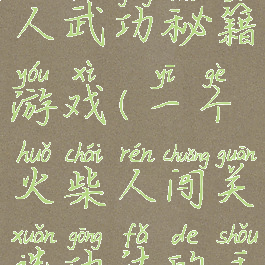 人武功秘籍
yóu xì yī gè
游戏(一个
huǒ chái rén chuǎng guān
火柴人闯关
xuǎn gōng fǎ de shǒu